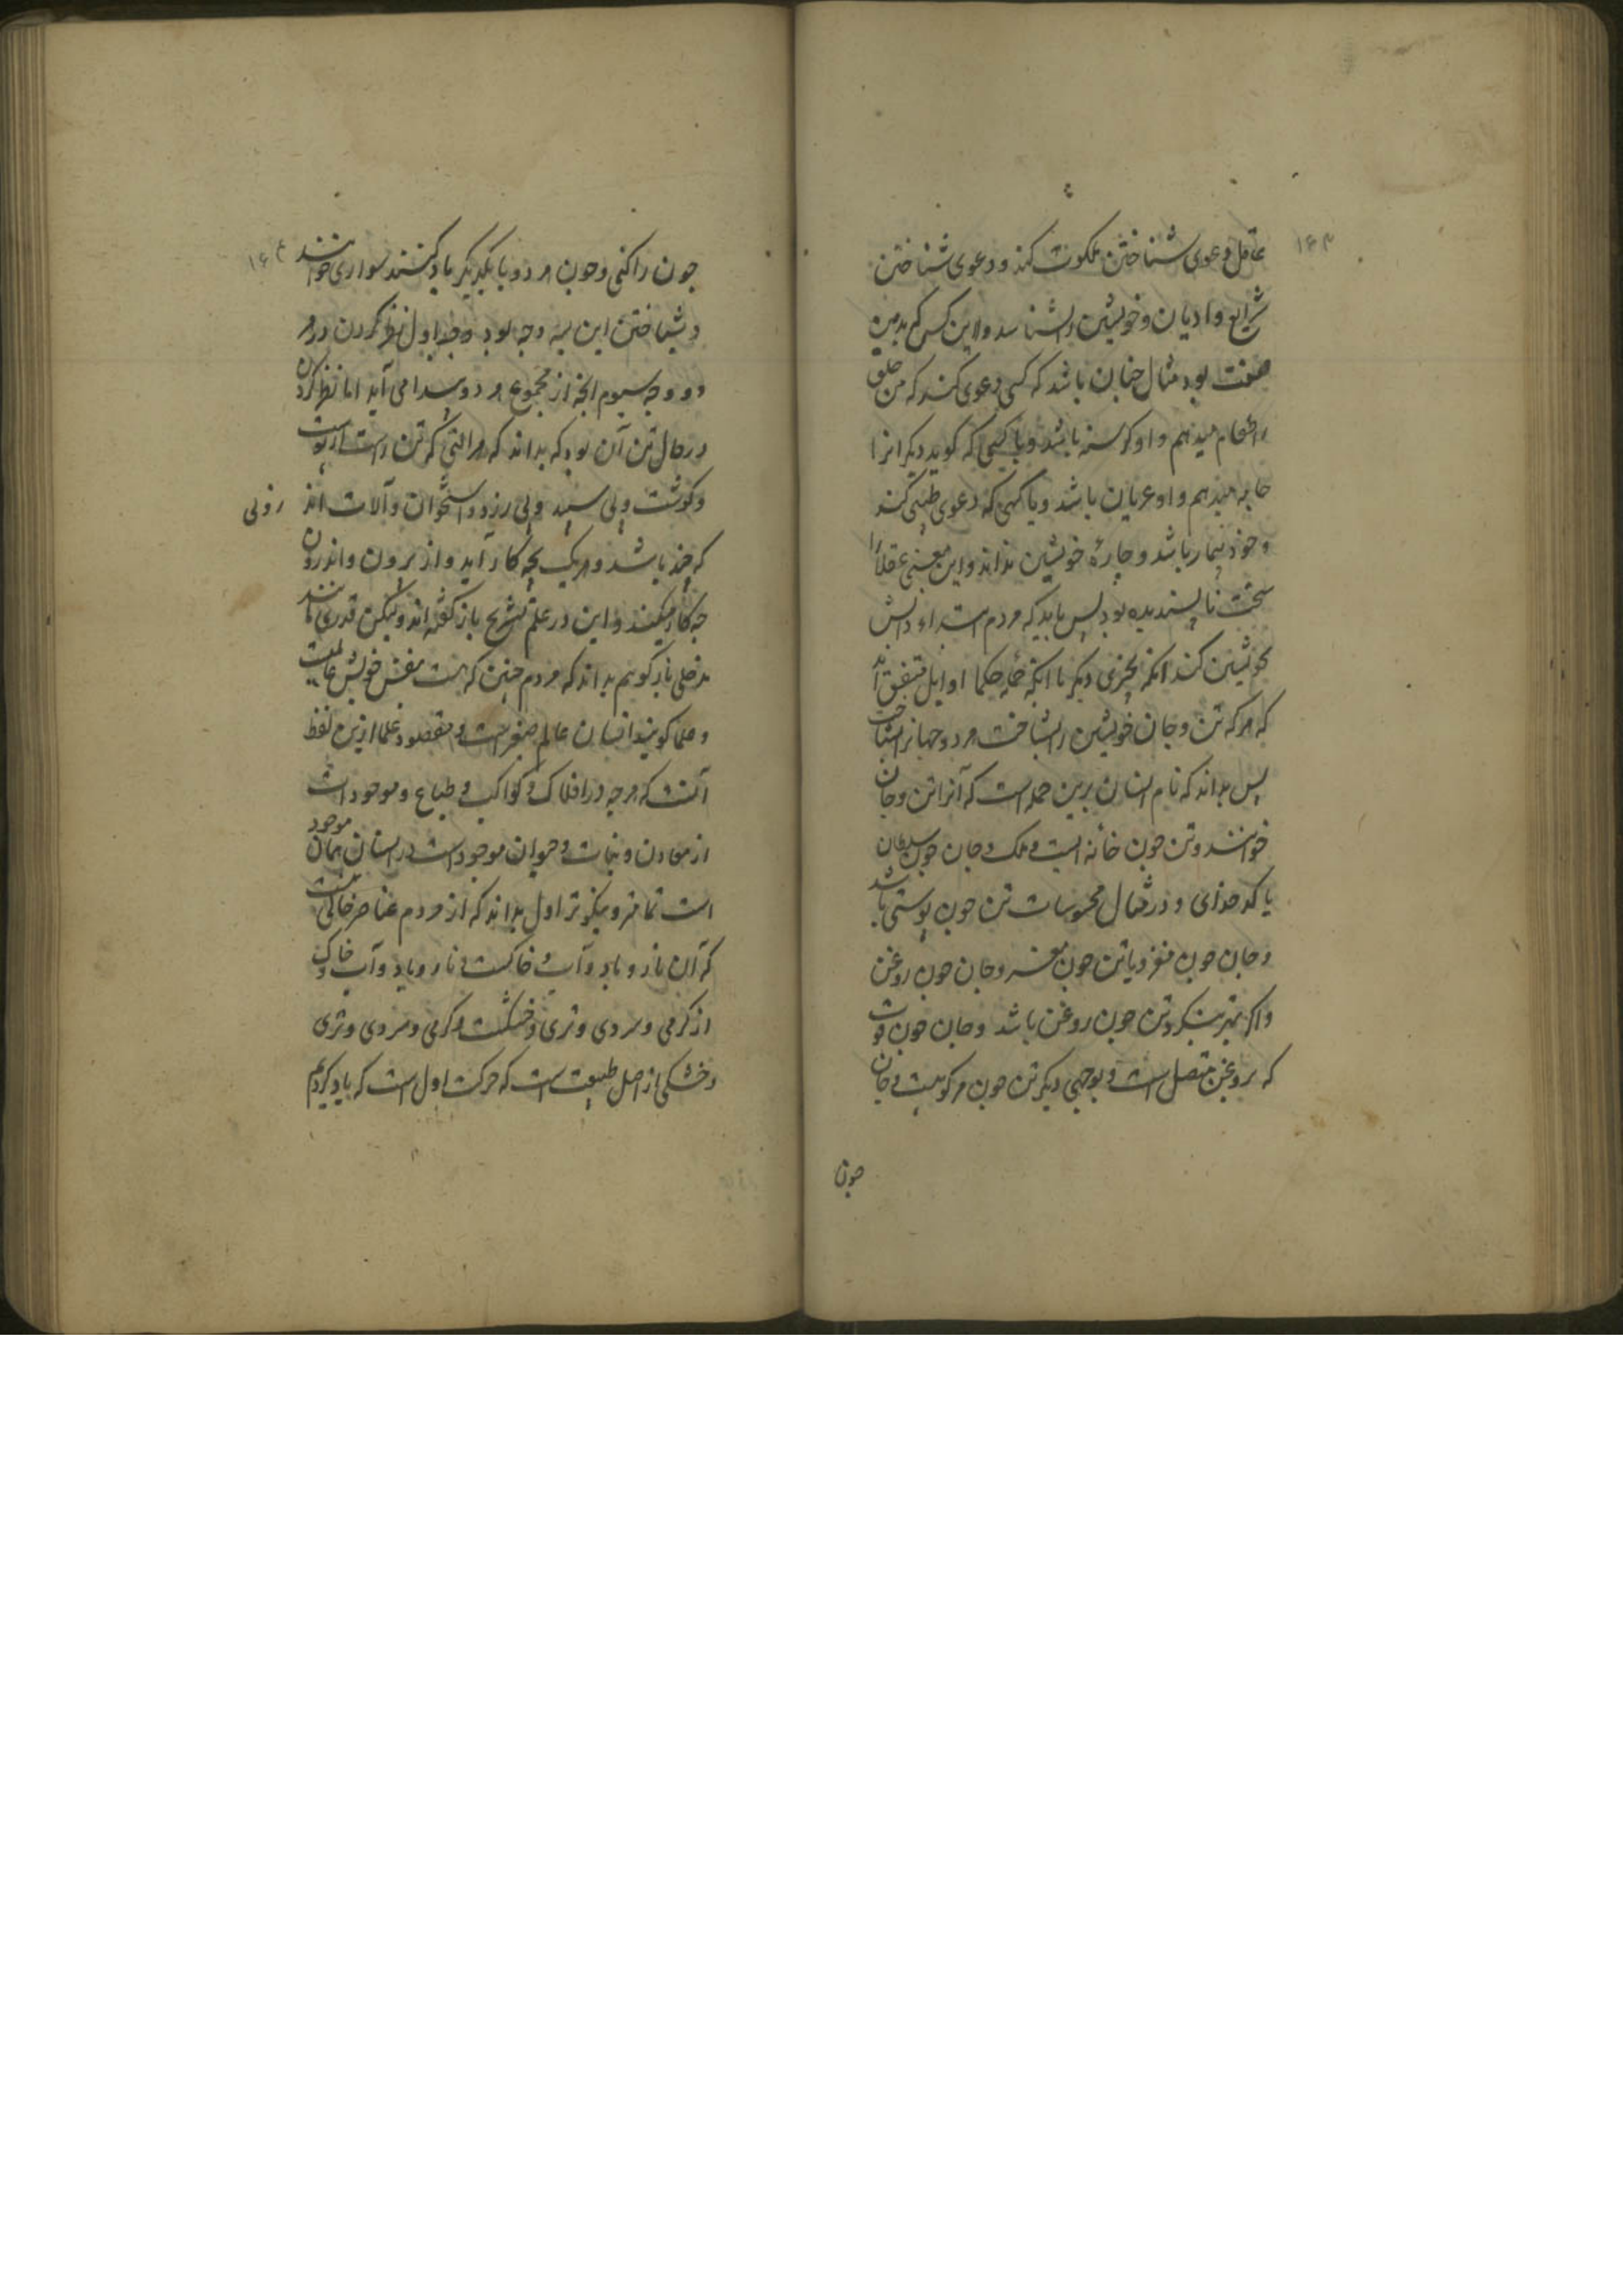 ۱۶۳
عاقل دعوی شناختن ملکوت کند و دعوی شناختن
شرایع و ادیان و خویشتن را نشناسد و این کس که بدین
صفت بود مثال چنان باشد که کسی دعوی کند که من خلق
را طعام میدهم و او کرسنه باشد و یا کسی که کوید دیکرانرا
جامه میدهم و او عریان باشد و یا کسی که دعوی طبیبی کند
و خود بیمار باشد و چارهٔ خویشتن نداند و این معنی عقلا را
سخت ناپسندیده بود پس باید که مردم ابتداء دانش
بخویشتن کند آنکه بچیزی دیکر با آنکه جمله حکما اوایل متفق اند
که هر که تن و جان خویشتن را بشناخت هر دو جهانرا بشناخت
پس بداند که نام انسان برین جمله است که آنرا تن و جان
خوانند و تن چون خانه ایست و ملک و جان چون سلطان
یا کدخدای و در مثال محسوسات تن چون پوستی باشد
و جان چون مغز و یا تن چون مغز و جان چون روغن
و اکر بهتر بنکرد تن چون روغن باشد و جان چون قوت
که بروغن متصل است و بوجهی دیکر تن چون مرکوبیست و جان
چون
۱۶۴
چون راکبی و چون هر دو با یکدیکر یاد کنند سواری خوانند
و شناختن این سه وجه بود وجه اول نظر کردن در هر
دو و وجه سیوم آنچه از مجموع هر دو پیدا می آید اما نظر کردن
در حال تن آن بود که بداند که هر آلتی که تن راست از پوست
و کوشت و پی سپید و پی زرد و استخوان و آلات اندرونی
که چند باشد و هر یک بچه کار آید و از برون و اندرون
چه کار میکنند و این در علم تشریح باز کفته اند ولیکن قدری مانند
مدخلی باز کویم بداند که مردم چنین که هست بنفس خویش عالمیست
و علما کویند انسان عالم صغیر است و مقصود علما ازین لفظ
آنست که هر چه در افلاک و کواکب و طبایع و موجود است
از معادن و نبات و حیوان موجود است در انسان همان موجود
است تمامتر و نیکوتر اول بداند که از مردم عناصر خاکی هست
که آن نار و باد و آب و خاکست و نار و باد و آب و خاک
از کرمی و سردی و تری و خشکیست و کرمی و سردی و تری
و خشکی از اصل طبیعت است که حرکت اول است که یاد کردیم